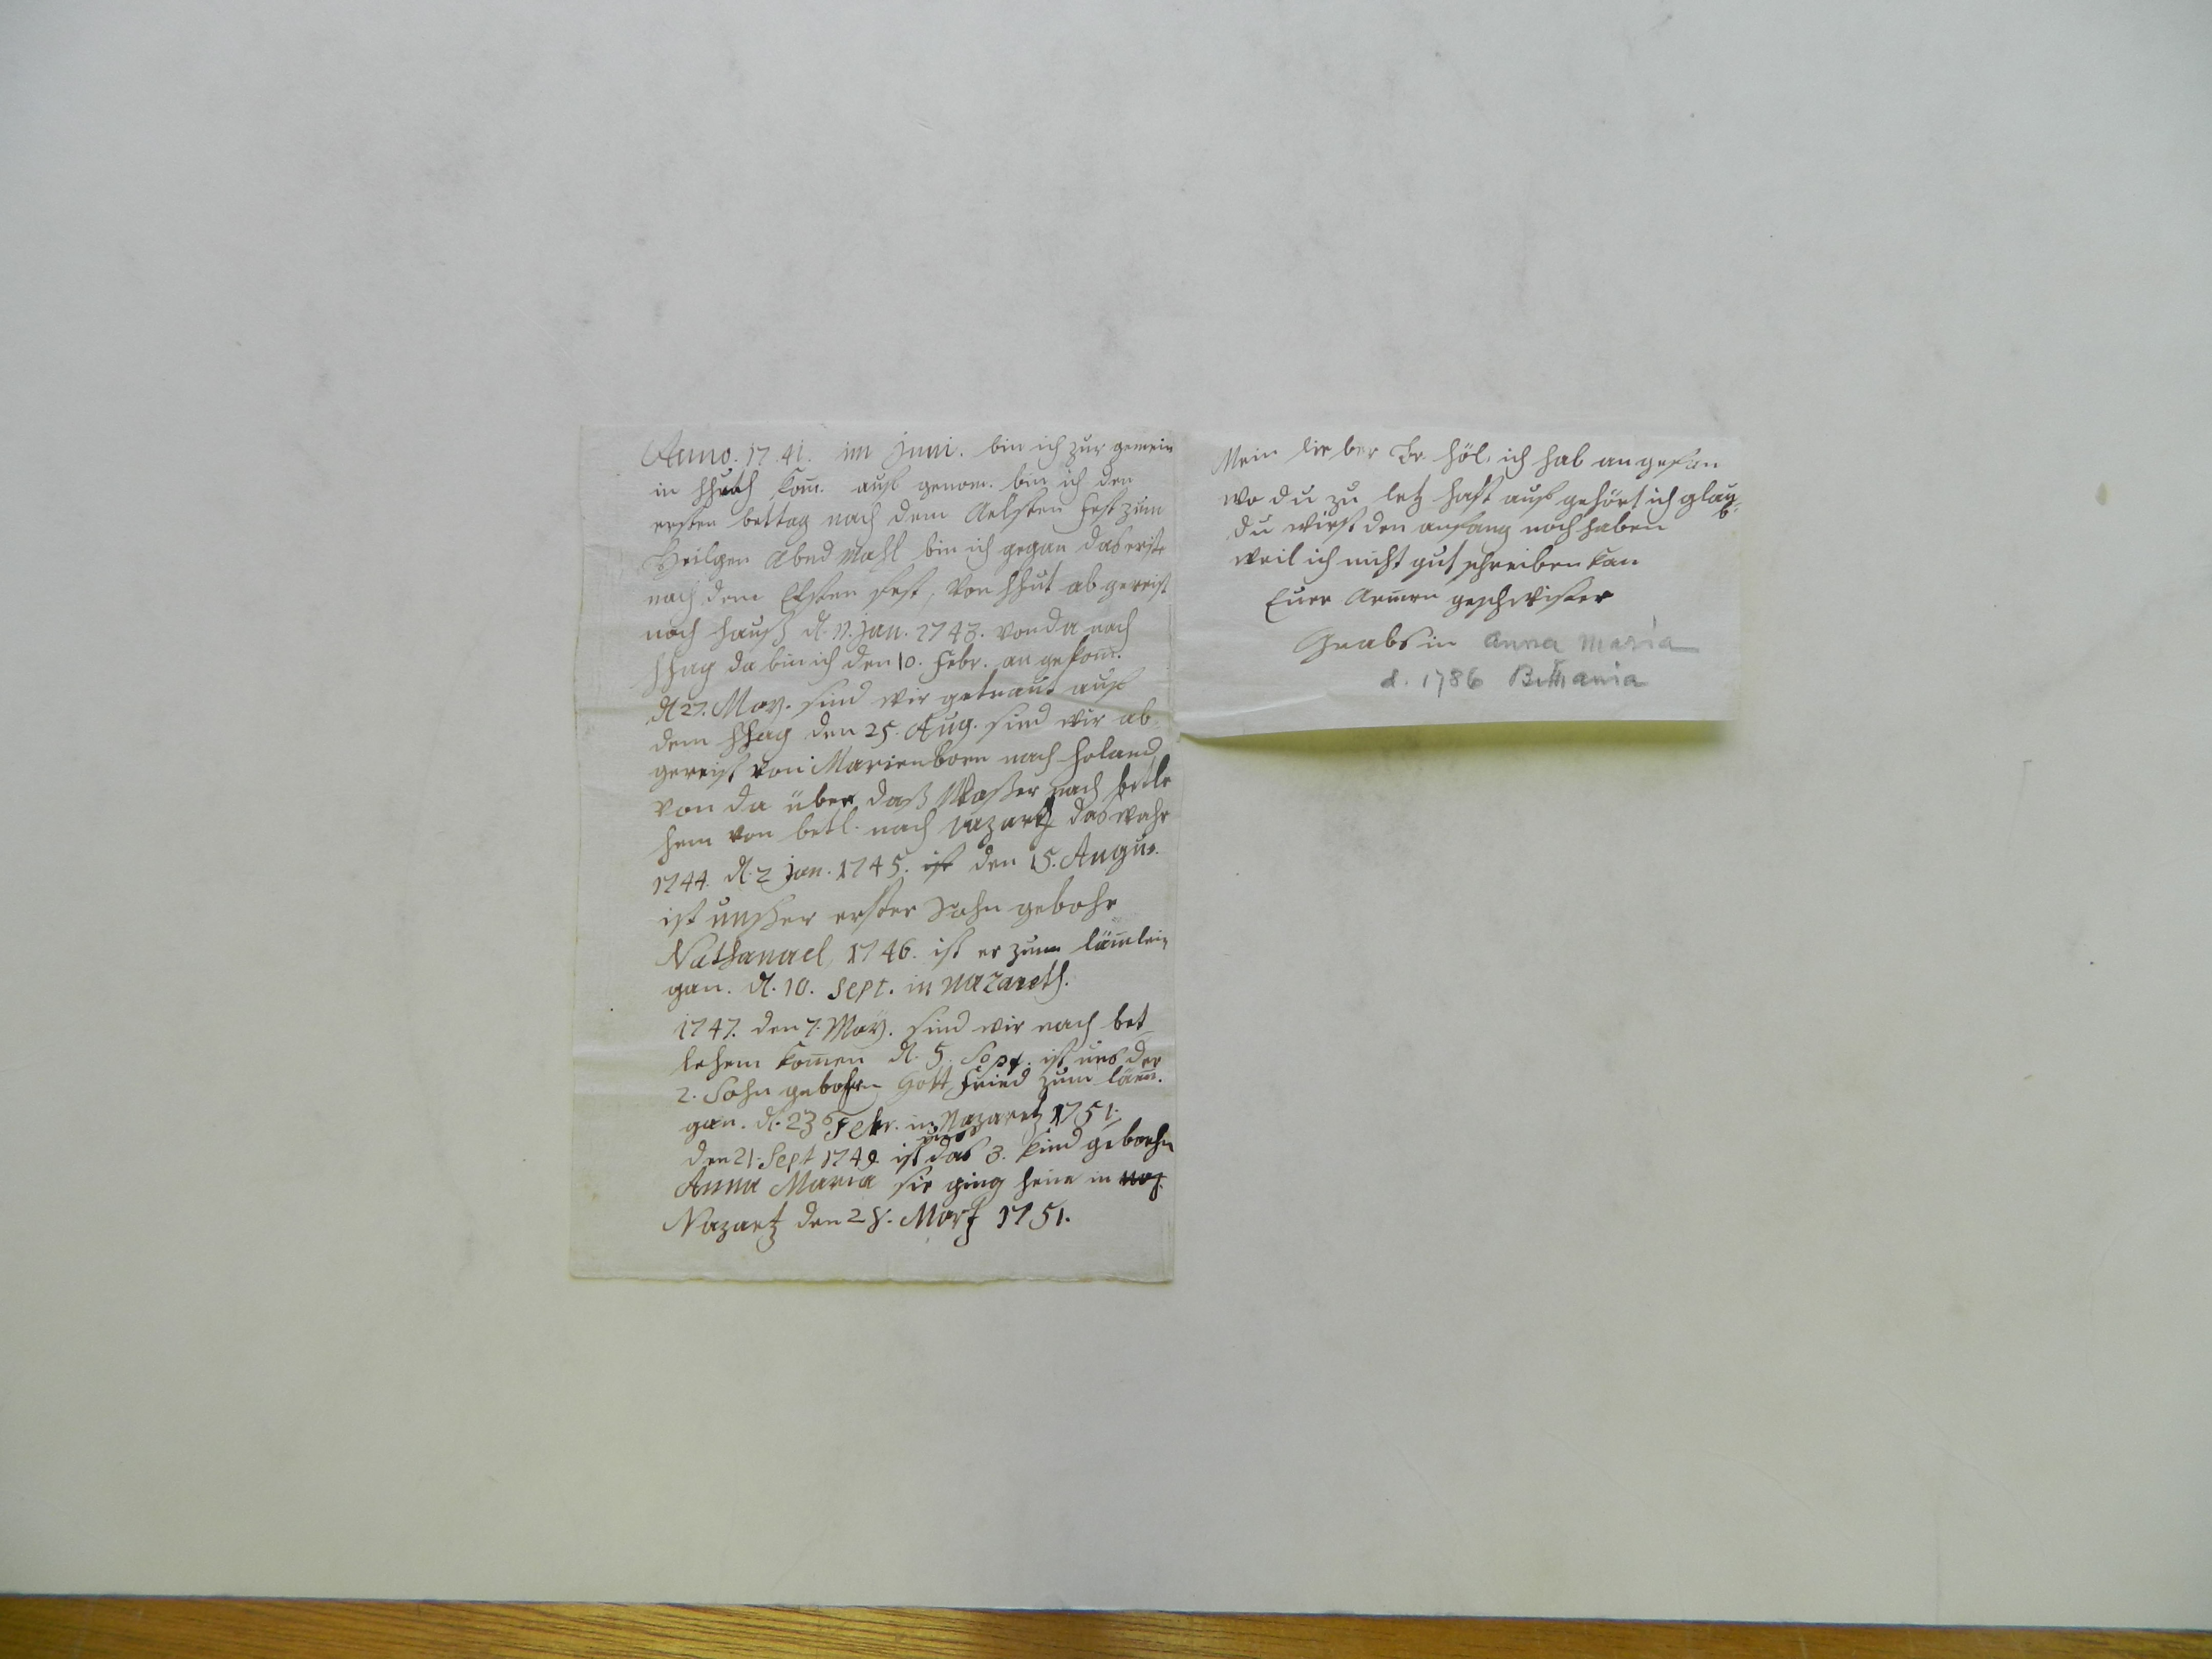 Anno. 17.41. im Juni. bin ich zur gemein
in hhuth kom̄. auf genom. bin ich den
ersten bettag nach dem Aelsten fest zum
Heilgen abend Mahl bin ich gegan das erste
nach dem Elsten fest, von hhut ab gereist
noch hauß d. 11. Jan. 1743. von da nach
hhag da bin ich den 10. Febr. an gekom̄.
d 27. May. sind wir getraut auf
dem hhag den 25. Aug. sind wir ab
gereist von Marienborn nach holand
von da über daß Waßer nach betle
hem von betl. nach nazareth das wahr
1744. d. 2 Jan. 1745. ist den 15. Augus.
ist unßer erster Sohn gebohr
Nathanael, 1746. ist er zum läm̄lein
gan. d. 10. Sept. in nazareth.
1747. den 7. May. sind wir nach bet
lehem kom̄en d. 5. Sept. ist uns der
2. Sohn gebohrn Gott fried zum läm̄.
gan. d. 23 Febr. in Nazaretz 1751.
uns
den 21. Sept 1749 ist das 3. kind geboehn
Anna Maria sie ging heim in naz.
Nazaretz den 28. Martz 1751.
Mein lieber Br. höl. ich hab an gefan
wo du zu letz hast auf gehört ich glaub
du wirst den anfang noch haben
weil ich nicht gut schreiben kan
Eure Armen geschwister
Grabsin Anna Maria
d. 1786 Bethania